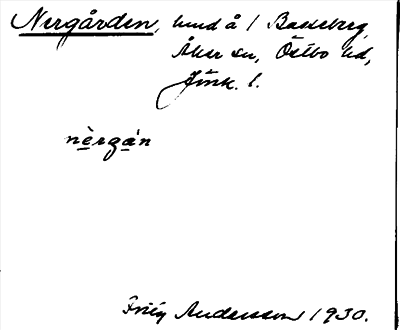 Nergården, hmd å 1 Basseberg,
Åker sn, Östbo hd,
Jönk. l.
nèrgán
Andersson 1930.